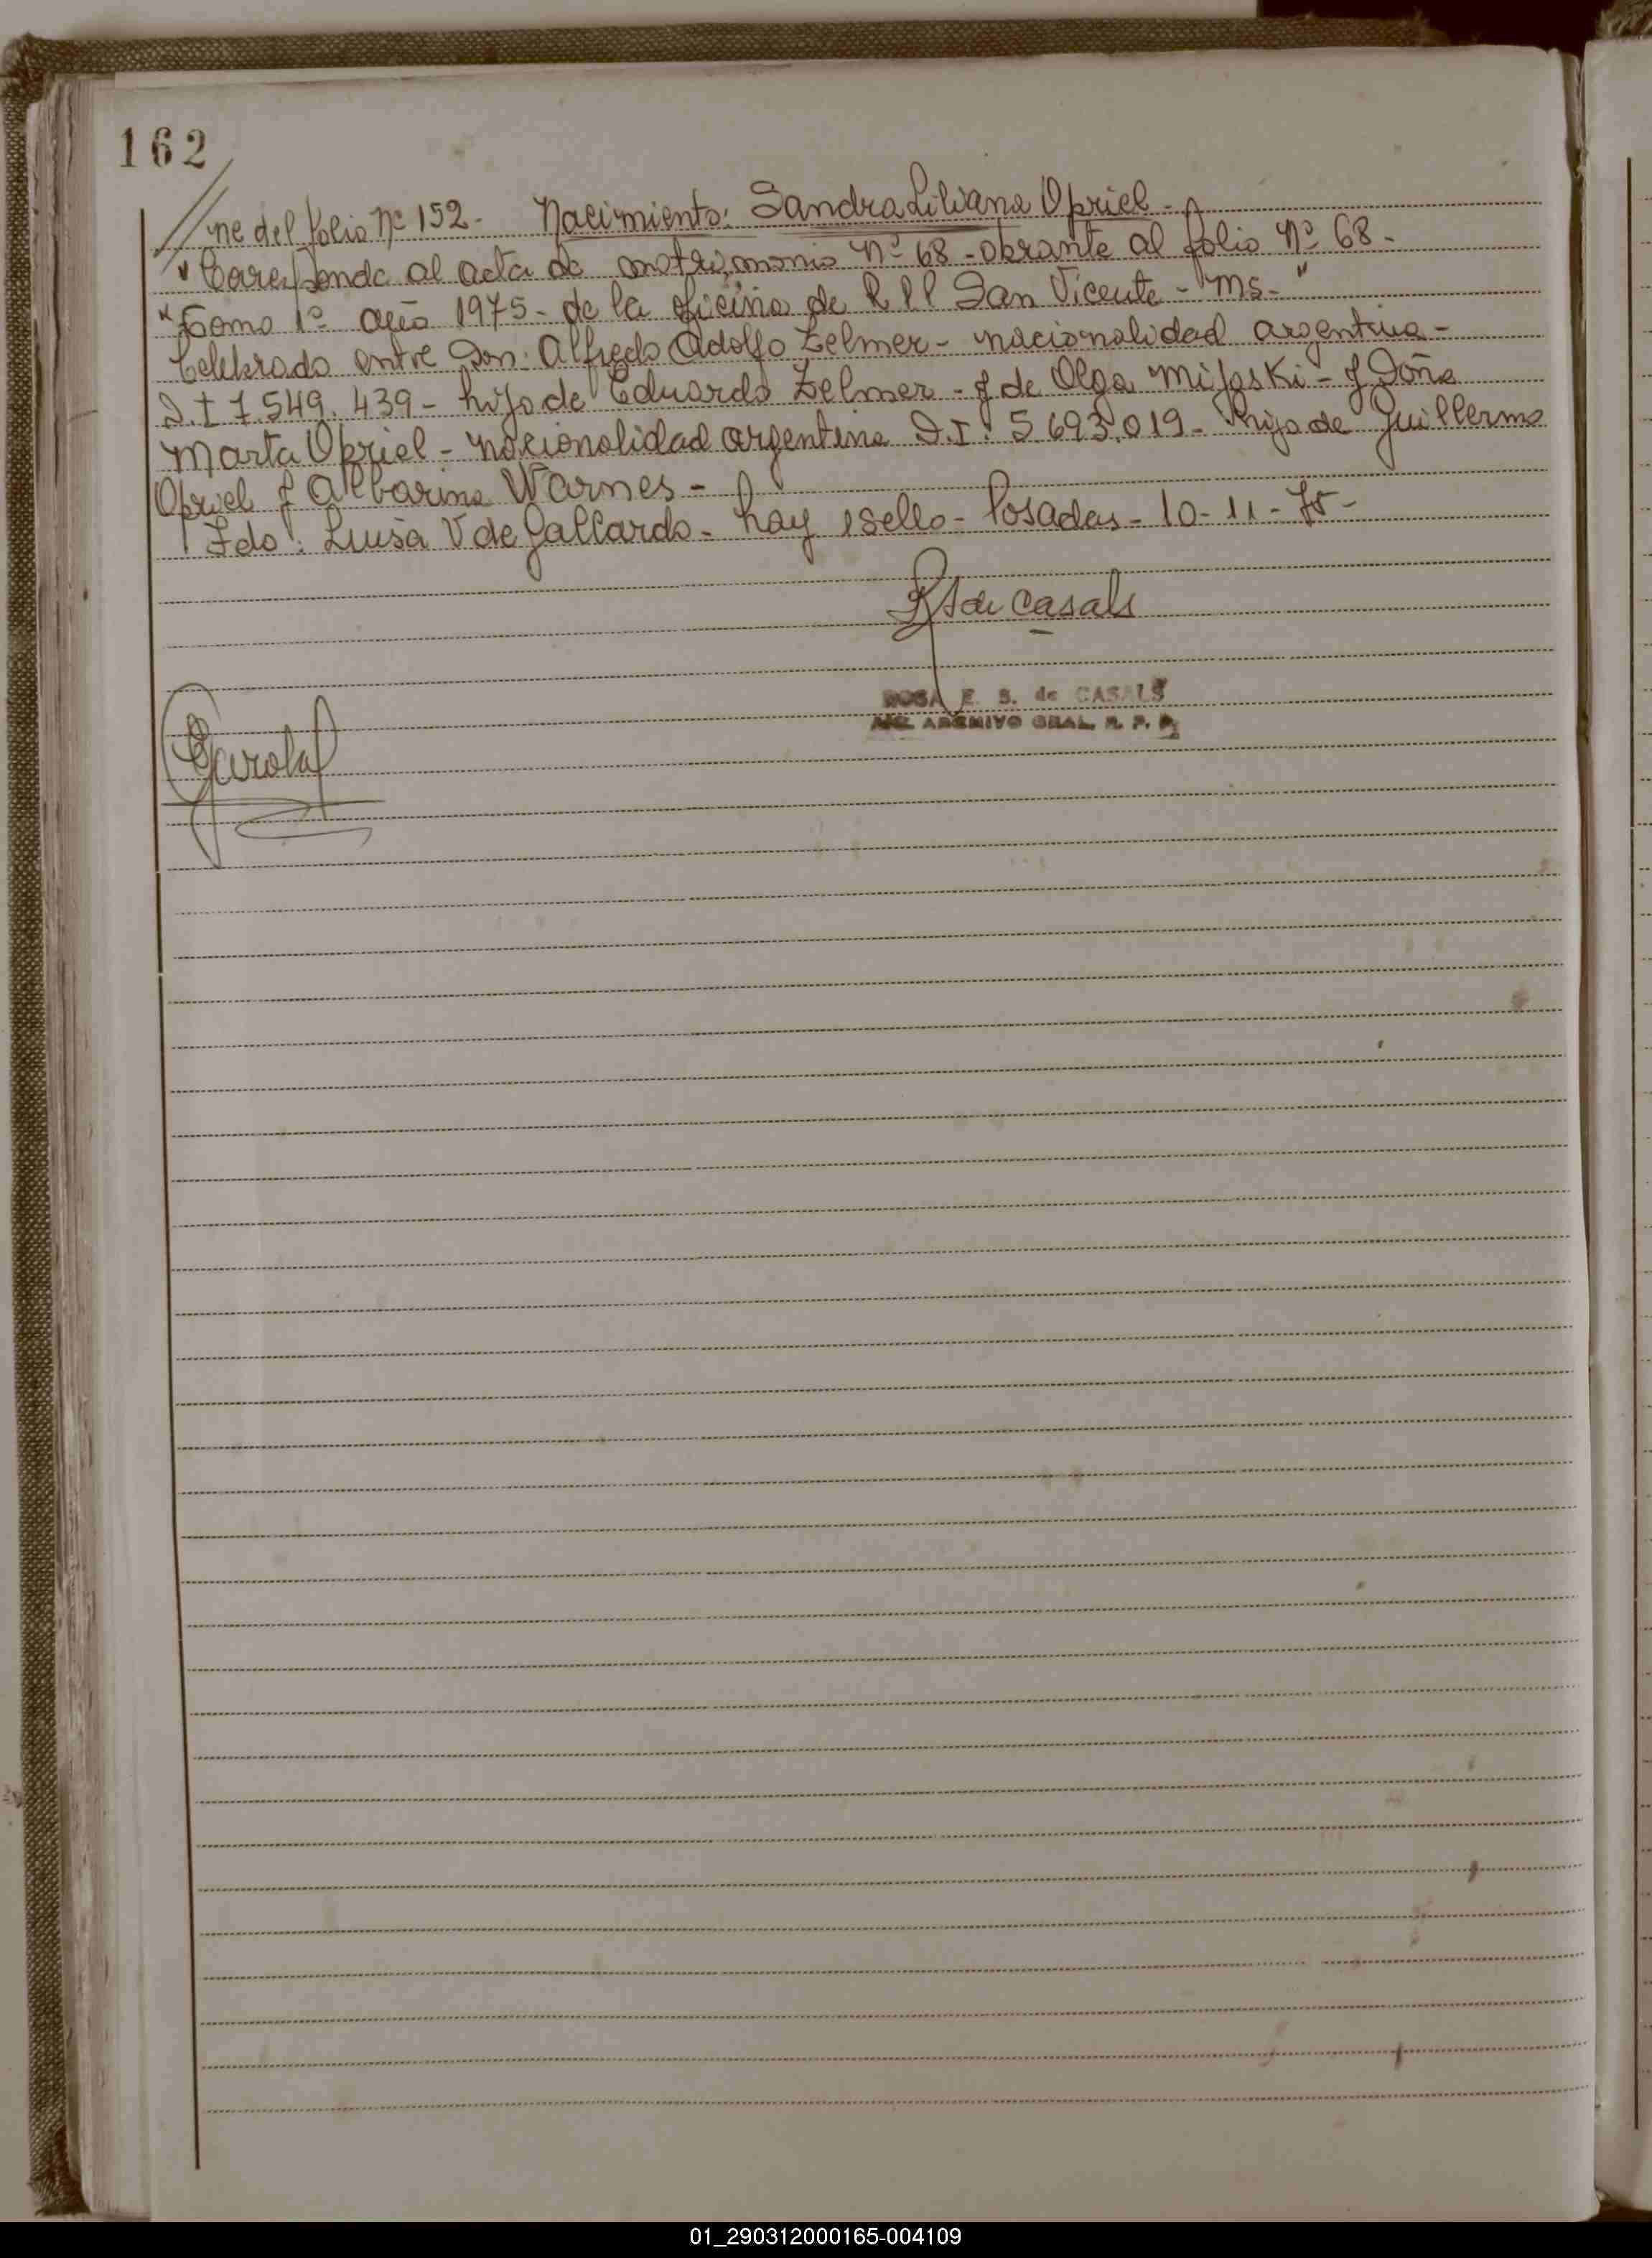 162
//ne del folio Nº 152 - Nacimiento: Sandra Liliana Opriel -
"Corresponde al acta de matrimonio Nº 68 - obrante al folio Nº 68 -
"Tomo 1º año 1975 - de la oficina de R P P San Vicente - Ms - "
Celebrado entre Don: Alfredo Adolfo Zelmer - nacionalidad argentina -
D.I 7.549.439 - hijo de Eduardo Zelmer - y de Olga Mijaski - y Doña
Marta Opriel - nacionalidad argentina D.I. 5.693.019 - hija de Guillermo
Opriel y Albarina Warnes -
Fdo: Luisa V de Gallardo - hay 1 sello - Posadas - 10 - 11 - 75 -
de Casals
ROSA E. S. de CASALS
ARCHIVO GRAL. R. P. P.
01_290312000165-004109